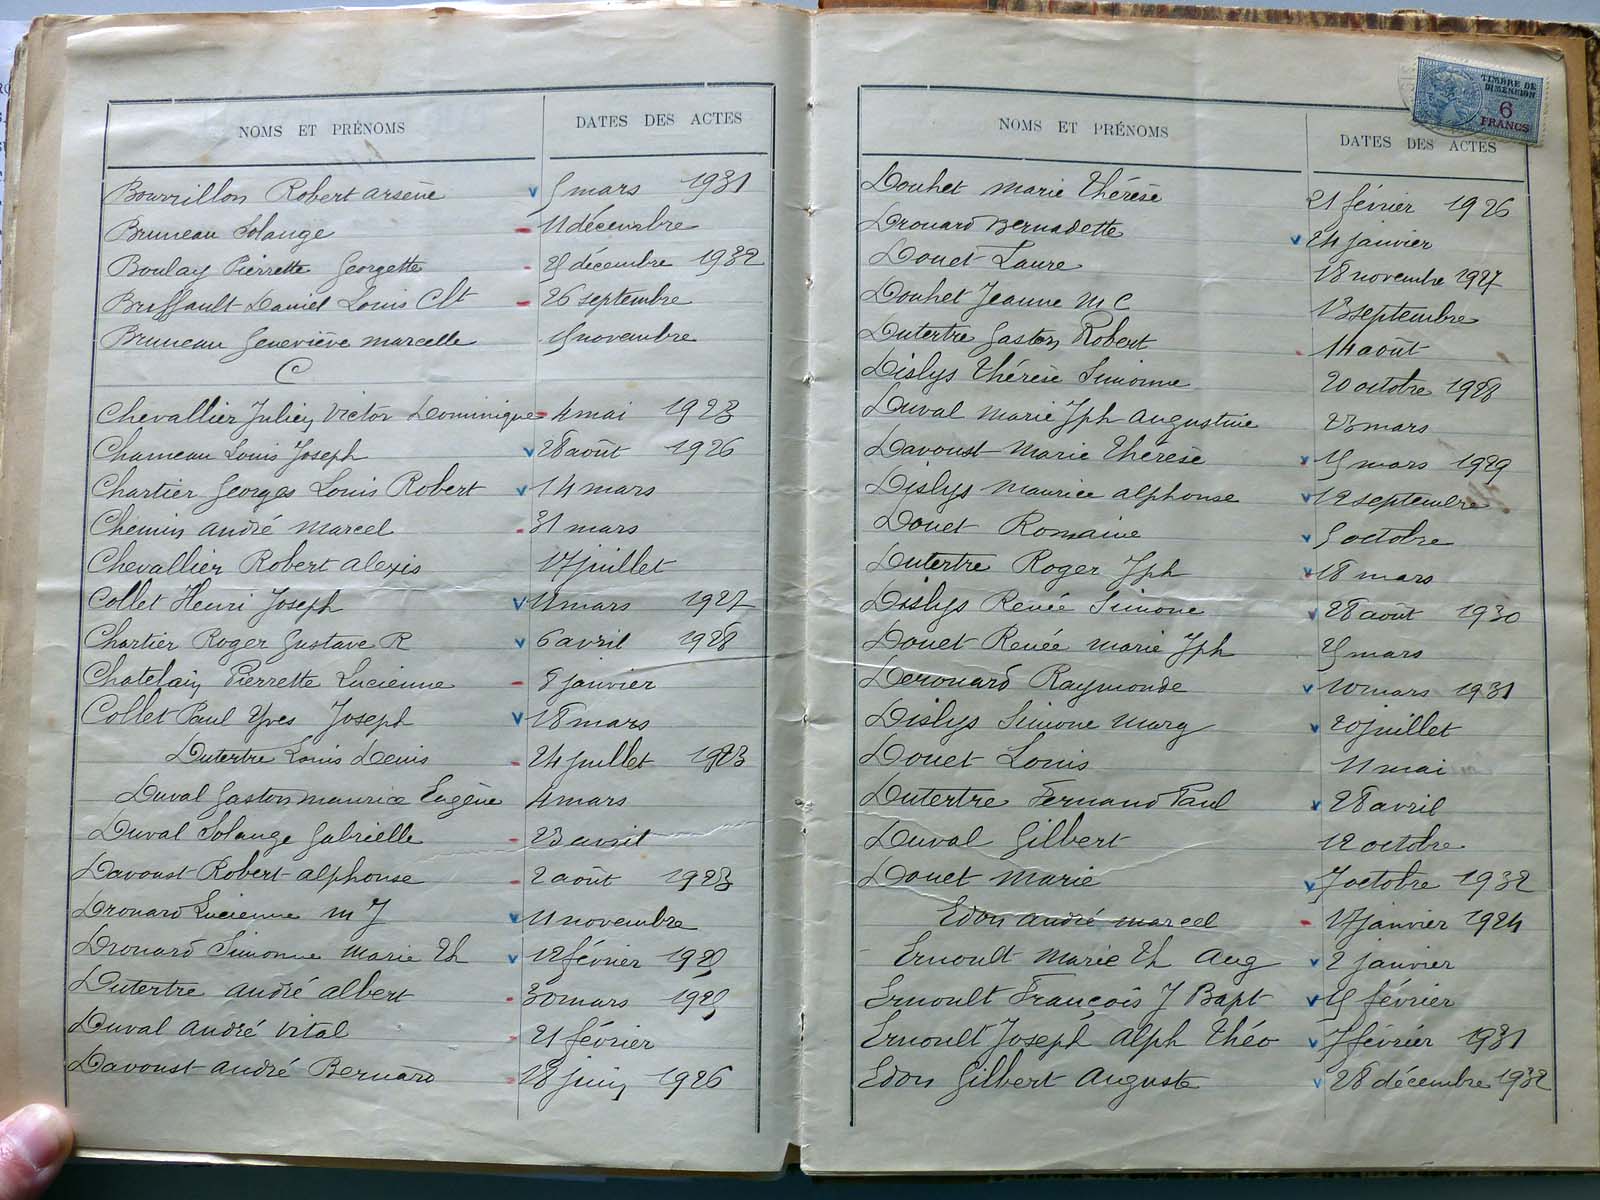 NOMS ET PRÉNOMS DATES DES ACTES
Bourrillon Robert arsène 5 mars 1931
Bruneau Solange 11 décembre
Boulay Pierrette Georgette 25 décembre 1932
Briffault Daniel Louis Clt 26 septembre
Bruneau Geneviève Marcelle 15 novembre
C
Chevallier Julien Victor Dominique 4 mai 1923
Chameau Louis Joseph 28 août 1926
Chartier Georges Louis Robert 14 mars
Chemin andré Marcel 31 mars
Chevallier Robert alexis 17 juillet
Collet Henri Joseph 11 mars 1927
Chartier Roger Gustave R 6 avril 1928
Chatelain Pierrette Lucienne 8 janvier
Collet Paul Yves Joseph 18 mars
Dutertre Louis Denis 24 juillet 1923
Duval Gaston maurice Eugène 4 mars
Duval Solange Gabrielle 23 avril
Davoust Robert alphonse 2 août 1923
Drouard Lucienne M J 11 novembre
Drouard Simonne Marie Th 12 février 1925
Dutertre andré albert 30 mars 1925
Duval andré Vital 21 février
Davoust andré Bernard 18 juin 1926
TIMBRE DE DIMENSION
6
FRANCS
NOMS ET PRÉNOMS DATES DES ACTES
Douhet Marie Thérèse 21 février 1926
Drouard Bernadette 24 janvier
Douet Laure 18 novembre 1927
Douhet Jeanne M C 13 septembre
Dutertre Gaston Robert 14 août
Dislys Thérèse Simonne 20 octobre 1928
Duval Marie Jph augustine 23 mars
Davoust Marie Thérèse 15 mars 1929
Dislys Maurice alphonse 12 septembre
Douet Romaine 5 octobre
Dutertre Roger Jph 18 mars
Dislys Renée Simone 28 août 1930
Douet Renée Marie Jph 25 mars
Derouard Raymonde 10 mars 1931
Dislys Simone Marg 20 juillet
Douet Louis 11 mai
Dutertre Fernand Paul 28 avril
Duval Gilbert 12 octobre
Douet Marie 7 octobre 1932
Edon andré marcel 17 janvier 1924
Ernoult Marie Th Aug 2 janvier
Ernoult François J Bapt 15 février
Ernoult Joseph Alph Théo 7 février 1931
Edon Gilbert Auguste 28 décembre 1932